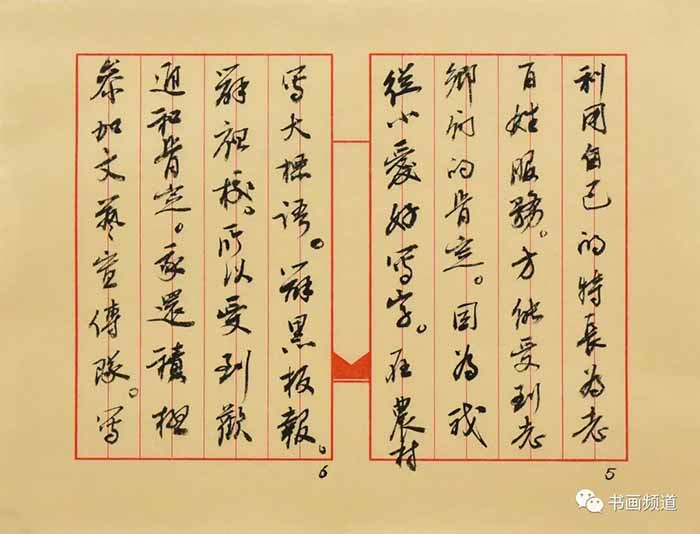 利用自己的特長為老
百姓服務。方能受到老
鄉们的肯定。因為我
從小愛好写字。在農村
5
写大標語。辦黑板報。
辦校。所以受到歡
迎和肯定。我還積極
參加文藝宣傳隊。写
6
书画频道